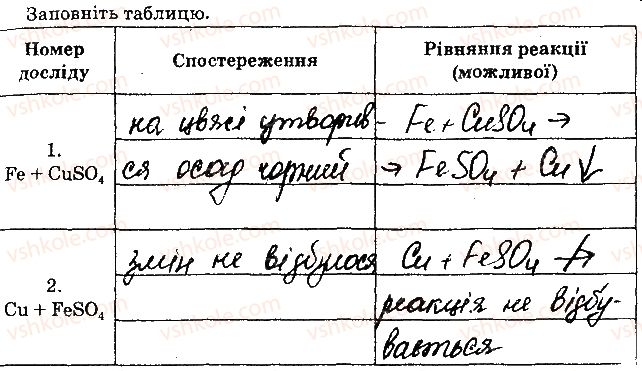 Заповніть таблицю.
Номер досліду
Спостереження
Рівняння реакції (можливої)
1.
Fe + CuSO₄
на цвясі утворив-
ся осад чорний
Fe + CuSO₄ →
→ FeSO₄ + Cu↓
2.
Cu + FeSO₄
змін не відбулося
Cu + FeSO₄ ↛
реакція не відбу-
вається
vshkole.com